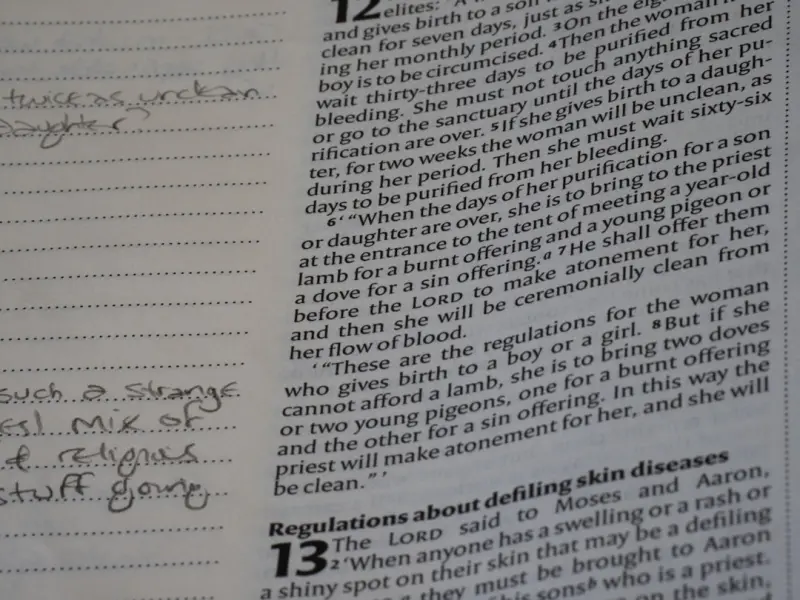 twice as unclean
daughter?
such a strange
mix of
& religious
stuff going
12 elites:
and gives birth to a son
clean for seven days, just as
ing her monthly period. 3On the
boy is to be circumcised. 4Then the woman
wait thirty-three days to be purified from her
bleeding. She must not touch anything sacred
or go to the sanctuary until the days of her pu-
rification are over. 5If she gives birth to a daugh-
ter, for two weeks the woman will be unclean, as
during her period. Then she must wait sixty-six
days to be purified from her bleeding.
6‘“When the days of her purification for a son
or daughter are over, she is to bring to the priest
at the entrance to the tent of meeting a year-old
lamb for a burnt offering and a young pigeon or
a dove for a sin offering.a 7He shall offer them
before the LORD to make atonement for her,
and then she will be ceremonially clean from
her flow of blood.
‘“These are the regulations for the woman
who gives birth to a boy or a girl. 8But if she
cannot afford a lamb, she is to bring two doves
or two young pigeons, one for a burnt offering
and the other for a sin offering. In this way the
priest will make atonement for her, and she will
be clean.”’
Regulations about defiling skin diseases
13 The LORD said to Moses and Aaron,
2‘When anyone has a swelling or a rash or
a shiny spot on their skin that may be a defiling
they must be brought to Aaron
sonsb who is a priest.
on the skin,